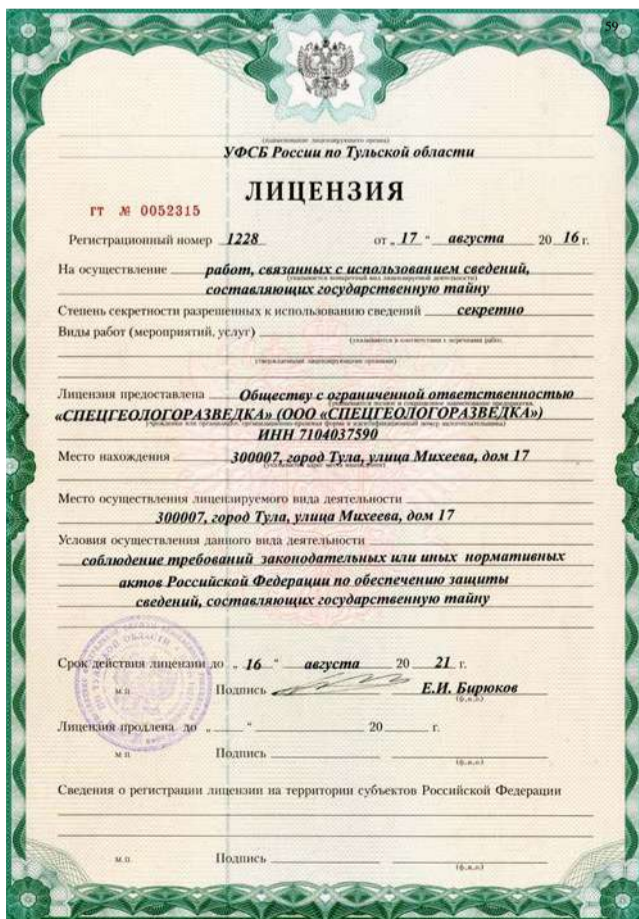 59
(наименование лицензирующего органа)
УФСБ России по Тульской области
ЛИЦЕНЗИЯ
ГТ № 0052315
Регистрационный номер 1228 от „ 17 “ августа 20 16 г.
На осуществление работ, связанных с использованием сведений,
(указывается конкретный вид лицензируемой деятельности)
составляющих государственную тайну
Степень секретности разрешенных к использованию сведений секретно
Виды работ (мероприятий, услуг)
(указываются в соответствии с перечнем работ,
утверждаемым лицензирующим органом)
Лицензия предоставлена Обществу с ограниченной ответственностью
«СПЕЦГЕОЛОГОРАЗВЕДКА» (ООО «СПЕЦГЕОЛОГОРАЗВЕДКА»)
ИНН 7104037590
Место нахождения 300007, город Тула, улица Михеева, дом 17
Место осуществления лицензируемого вида деятельности
300007, город Тула, улица Михеева, дом 17
Условия осуществления данного вида деятельности
соблюдение требований законодательных или иных нормативных
актов Российской Федерации по обеспечению защиты
сведений, составляющих государственную тайну
Срок действия лицензии до „ 16 “ августа 20 21 г.
м.п. Подпись Е.И. Бирюков
(ф.и.о.)
Лицензия продлена до „ “ 20 г.
м.п. Подпись
(ф.и.о.)
Сведения о регистрации лицензии на территории субъектов Российской Федерации
м.п. Подпись
(ф.и.о.)